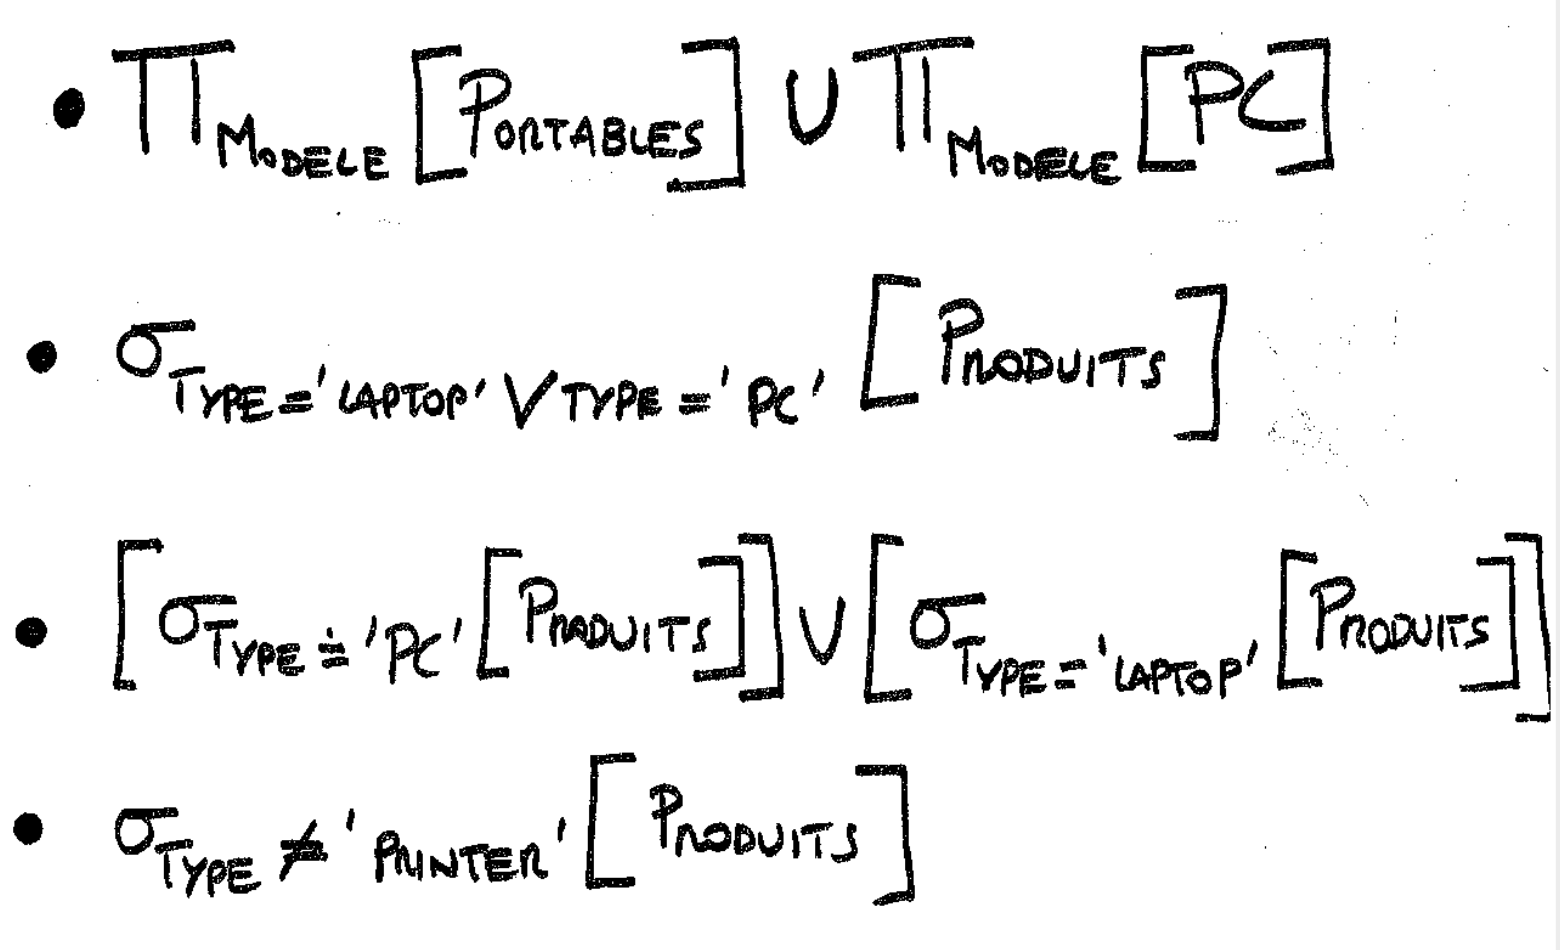 • Π MODELE [PORTABLES] ∪ Π MODELE [PC]
• σ TYPE = 'LAPTOP' ∨ TYPE = 'PC' [PRODUITS]
• [σ TYPE = 'PC' [PRODUITS]] ∪ [σ TYPE = 'LAPTOP' [PRODUITS]]
• σ TYPE ≠ 'PRINTER' [PRODUITS]